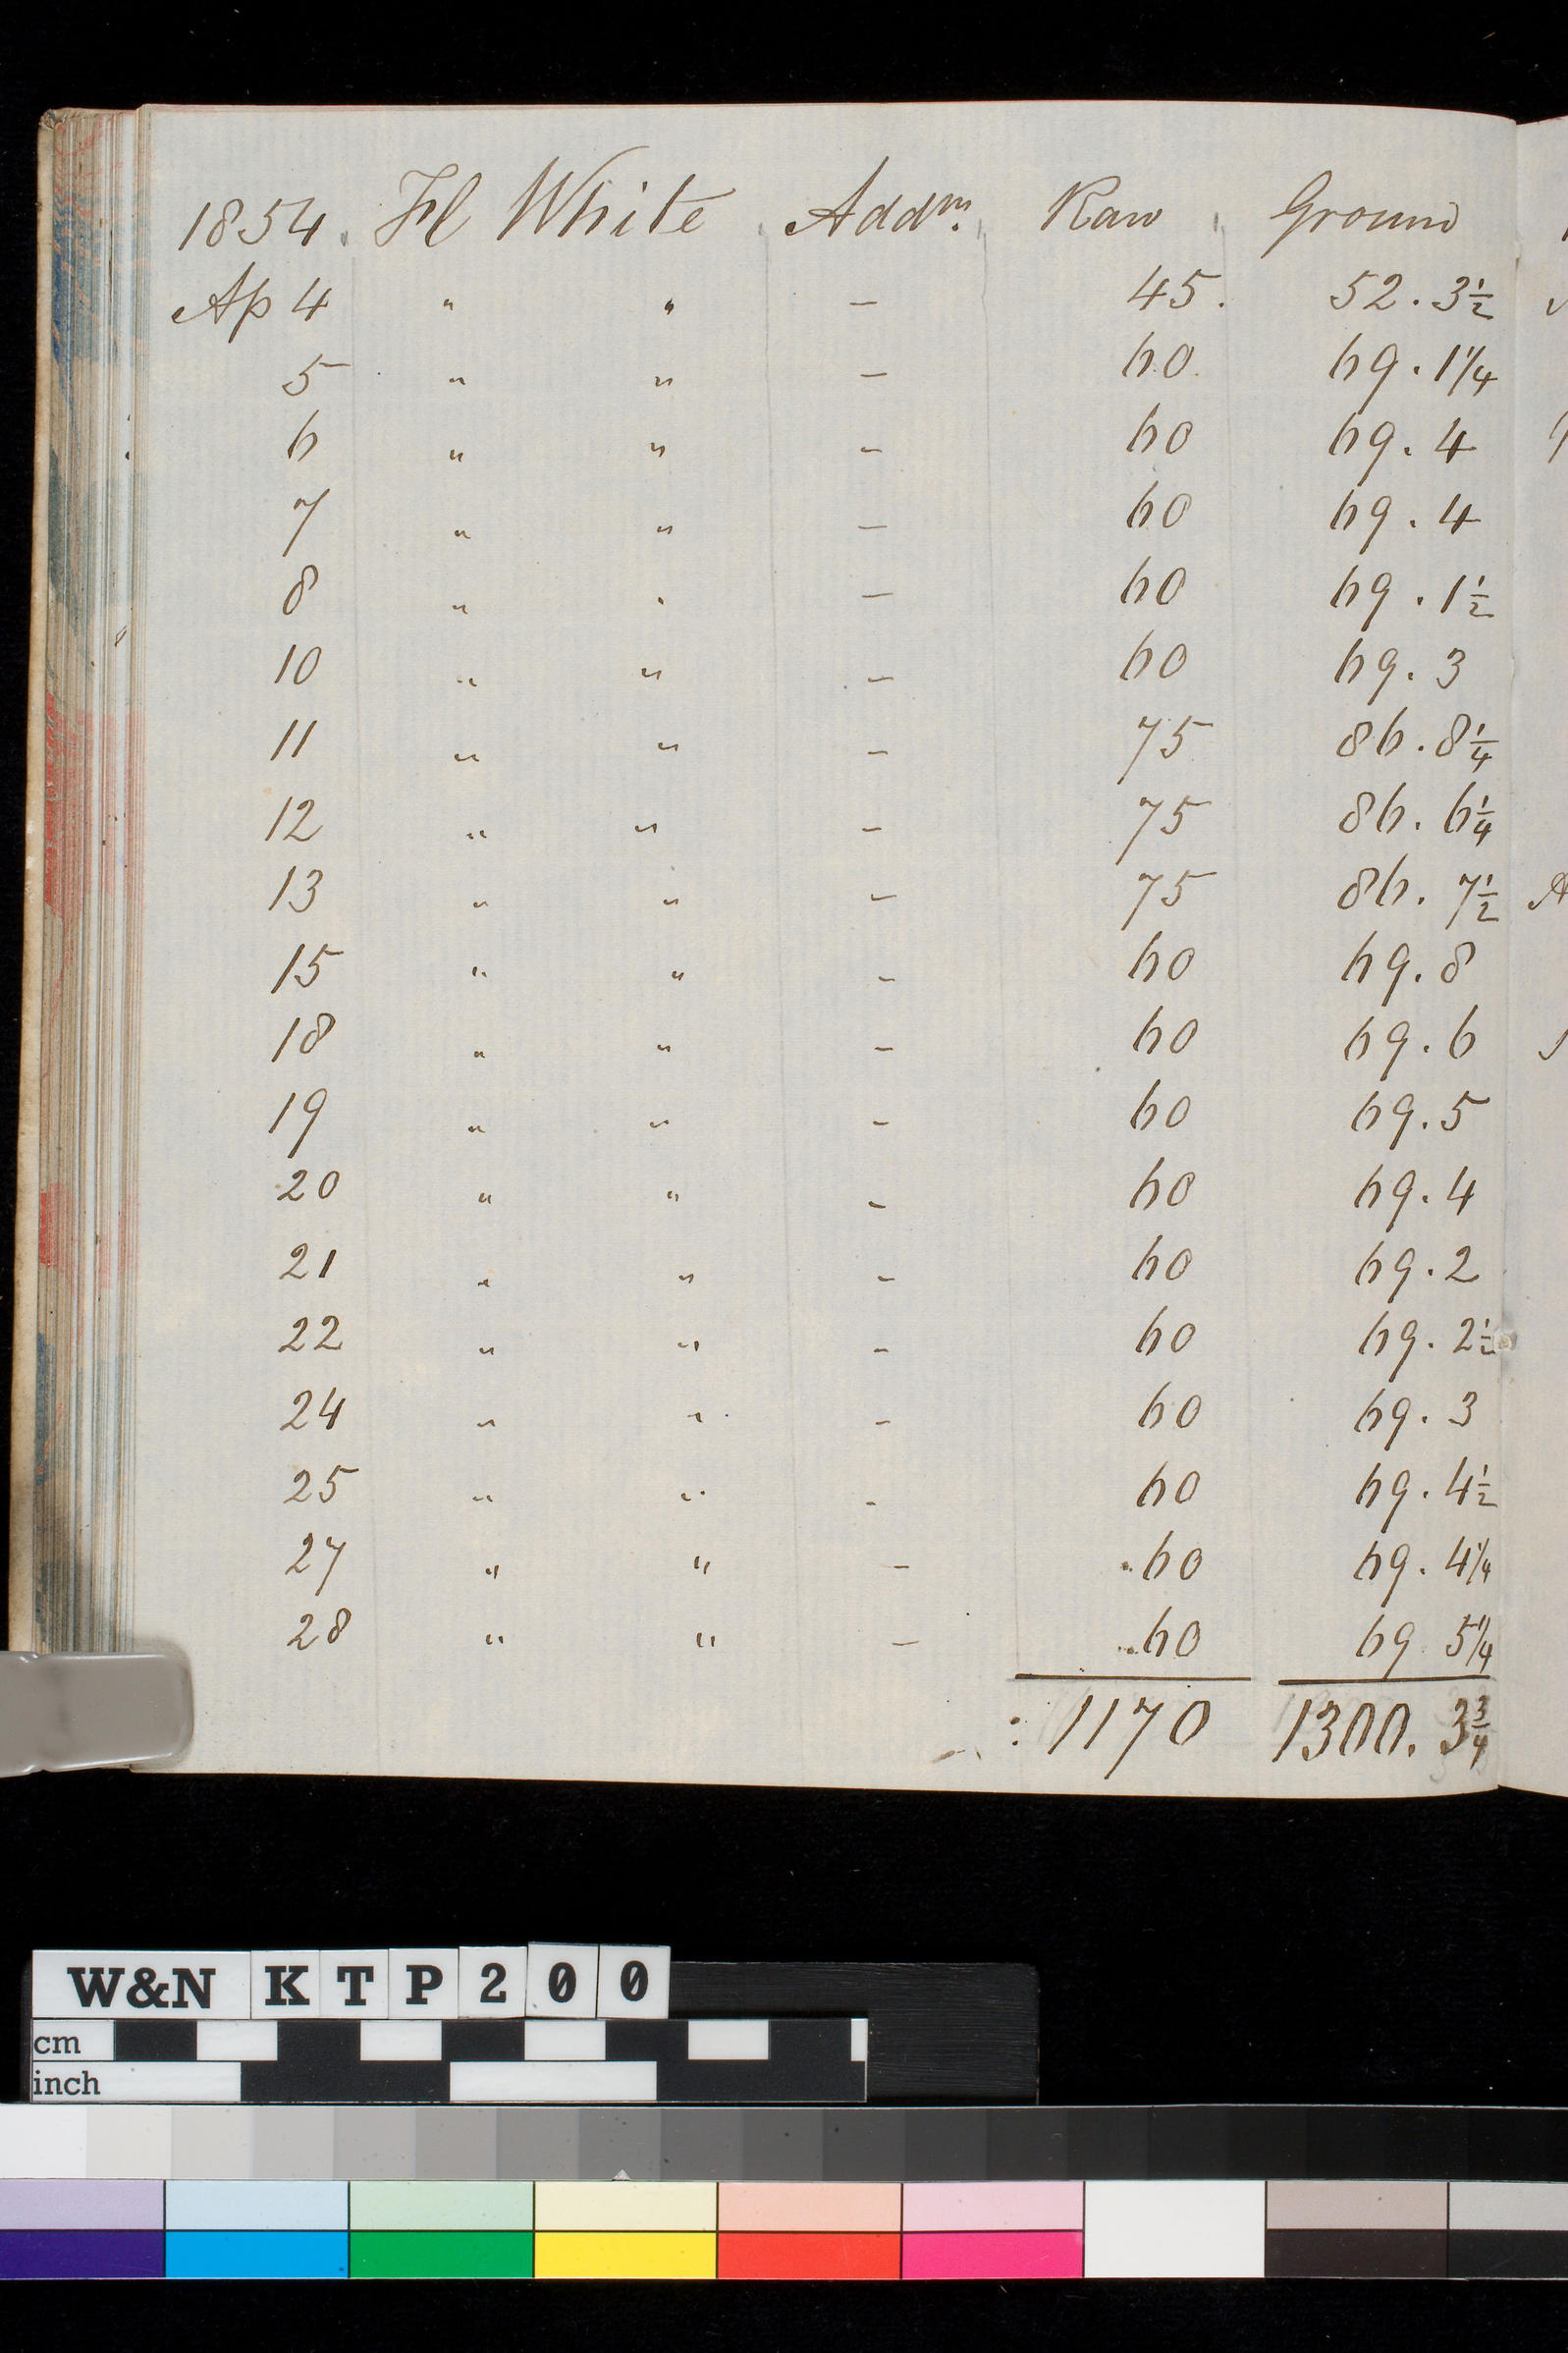 1854. Fl White Addn. Raw Ground
Ap 4 " " — 45. 52. 3½
5 " " — 60. 69. 1¼
6 " " — 60 69. 4
7 " " — 60 69. 4
8 " " — 60 69. 1½
10 " " — 60 69. 3
11 " " — 75 86. 8¼
12 " " — 75 86. 6¼
13 " " — 75 86. 7½
15 " " — 60 69. 8
18 " " — 60 69. 6
19 " " — 60 69. 5
20 " " — 60 69. 4
21 " " — 60 69. 2
22 " " — 60 69. 2½
24 " " — 60 69. 3
25 " " — 60 69. 4½
27 " " — 60 69. 4¼
28 " " — 60 69 5¼
: 1170 1300. 3¾
W&N KTP200
cm
inch